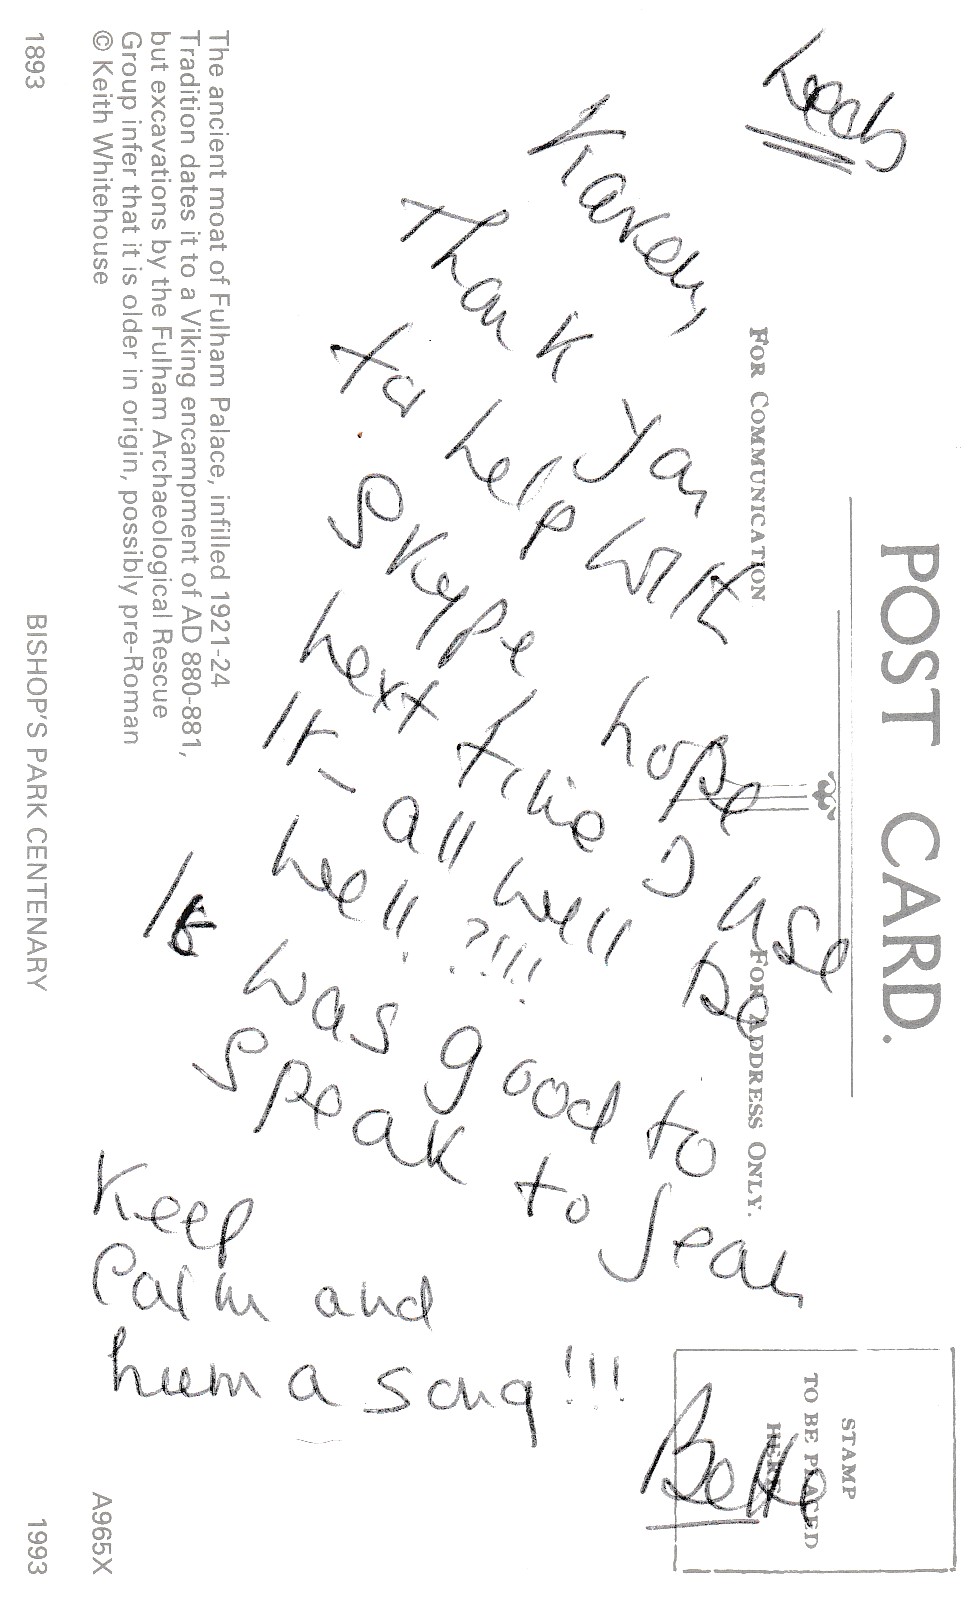 POST CARD.
FOR COMMUNICATION
FOR ADDRESS ONLY.
STAMP
TO BE PLACED
HERE
Karen,
Thank you
to help with
Skype hope
next time I use
It - all will be
well ?!!!
It was good to
speak to Jean
Keep
Calm and
hum a song !!!
Bette
The ancient moat of Fulham Palace, infilled 1921-24
Tradition dates it to a Viking encampment of AD 880-881,
but excavations by the Fulham Archaeological Rescue
Group infer that it is older in origin, possibly pre-Roman
© Keith Whitehouse
A965X
1893 BISHOP'S PARK CENTENARY 1993